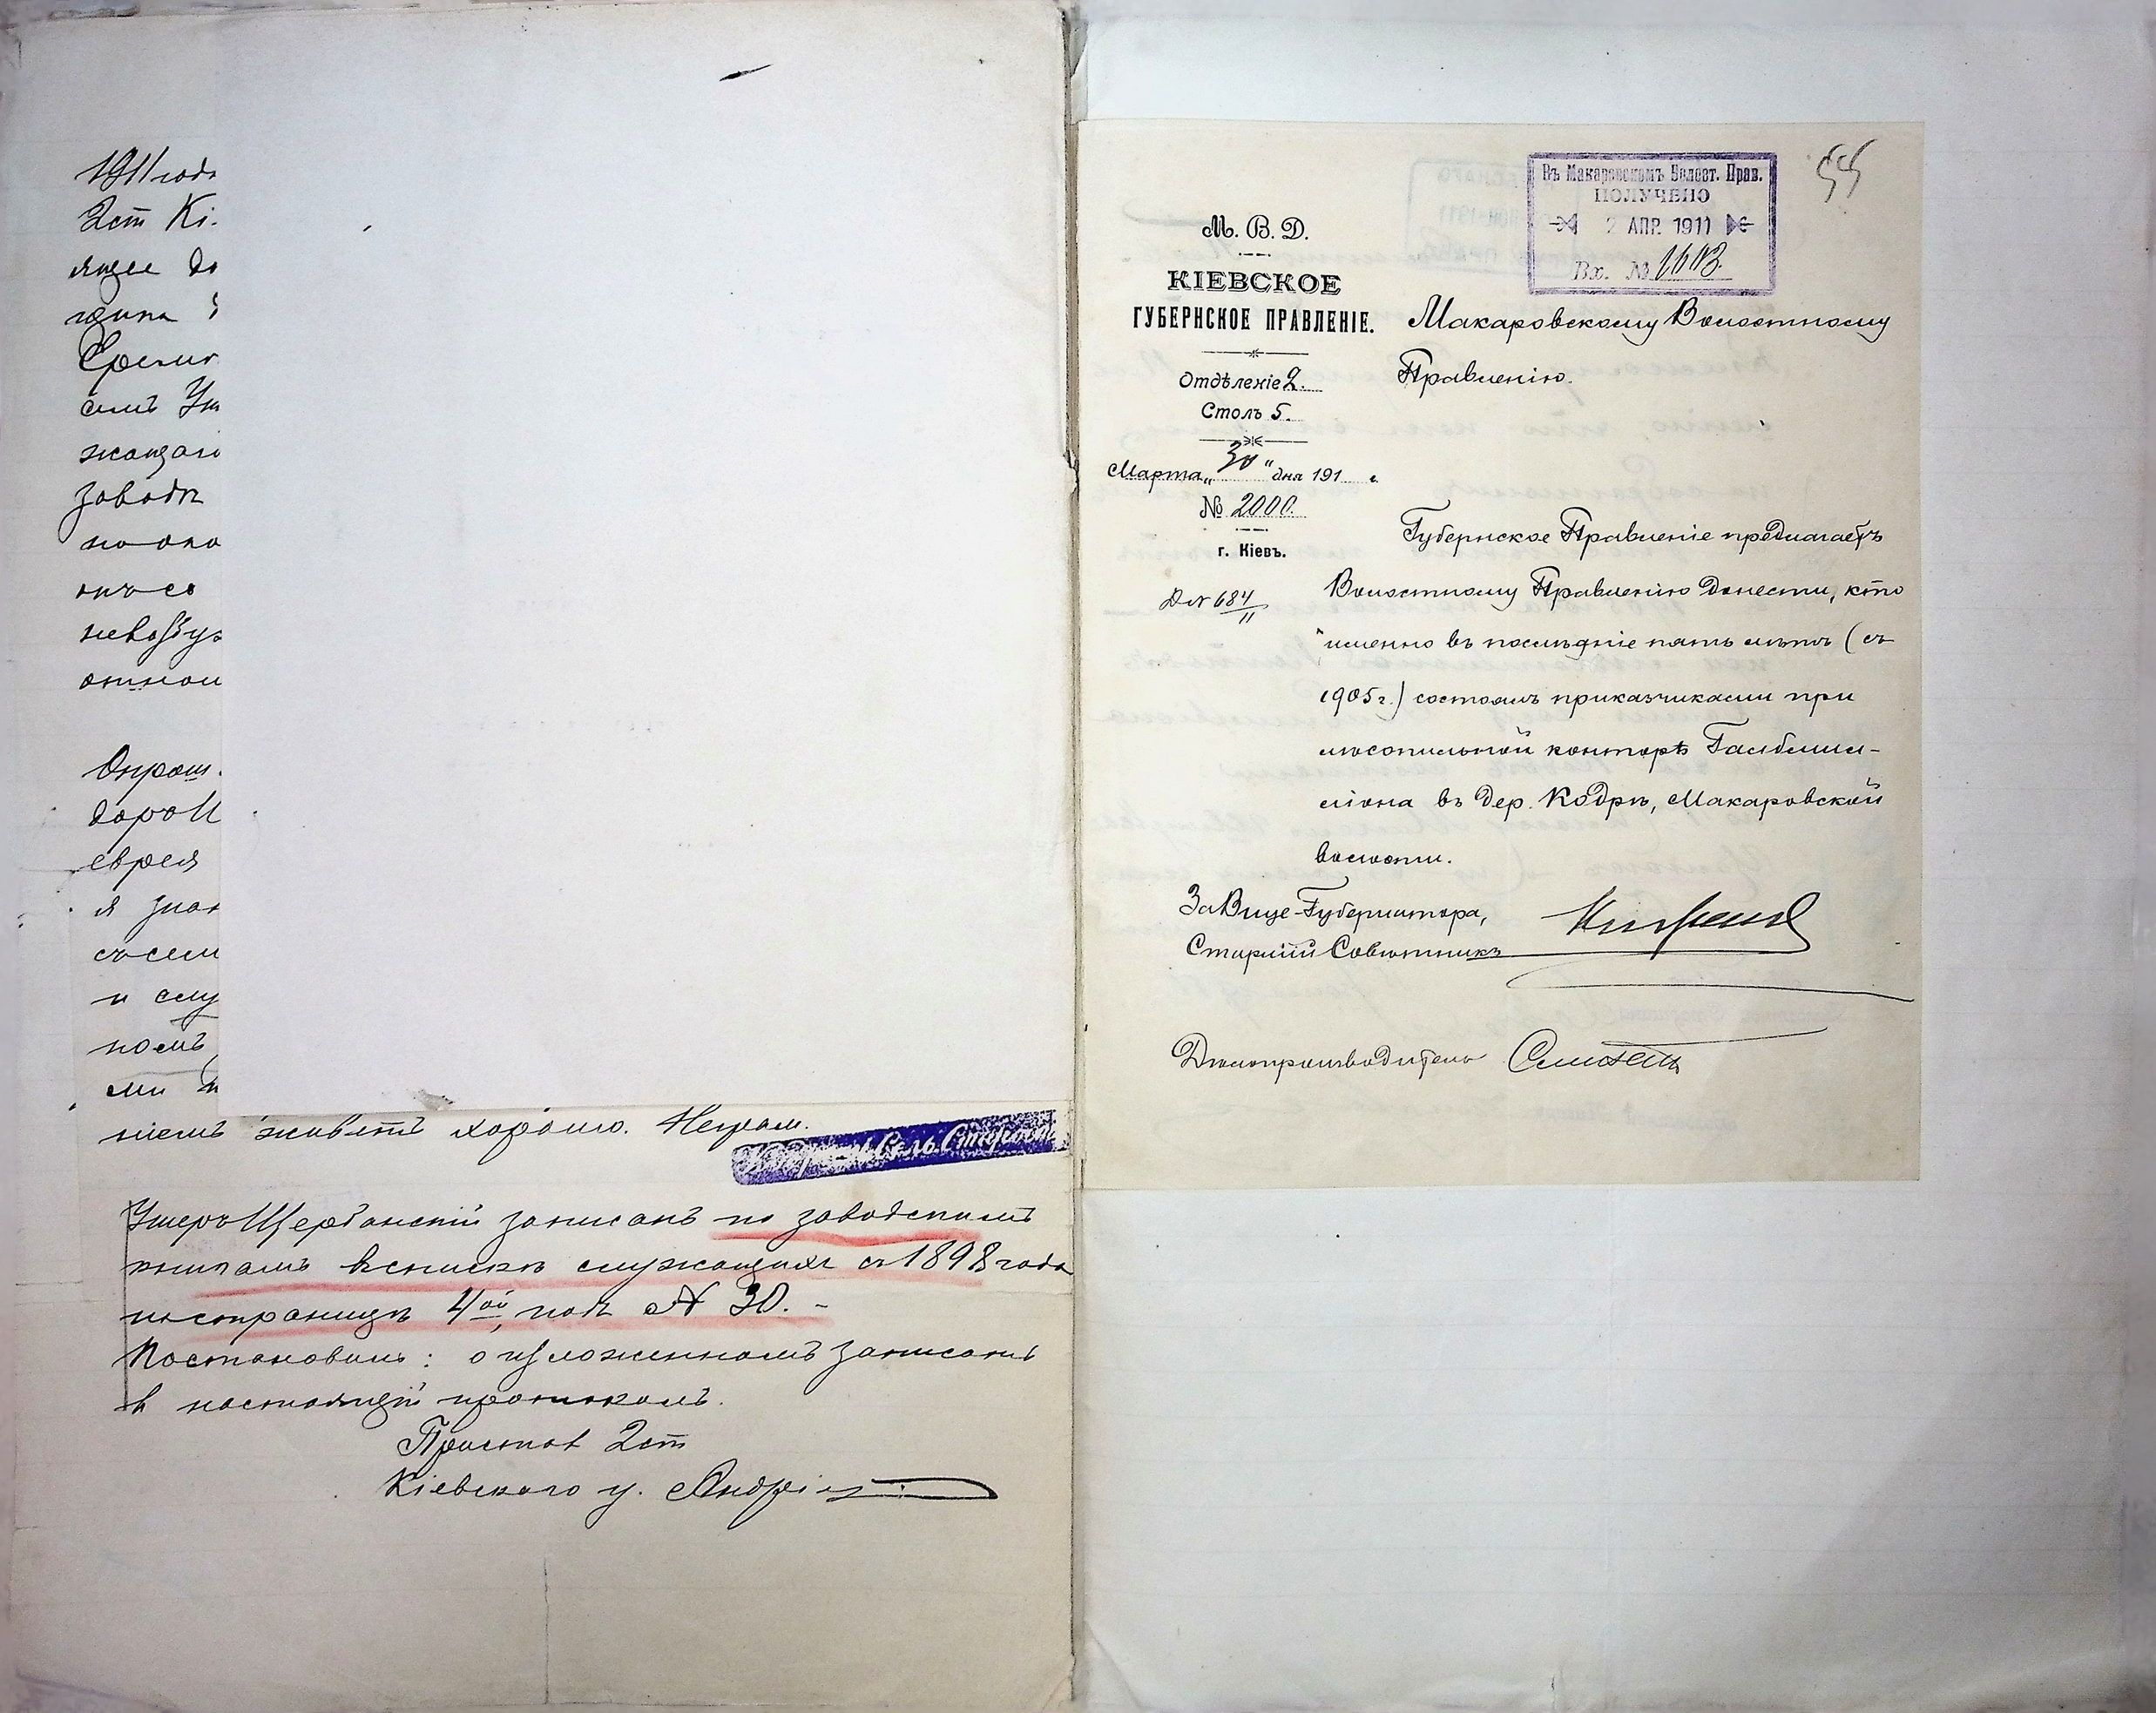 1911 года
2 ст Кі-
ящее до
Еремі
жащаго
заводѣ
но ока
невозбу
отнош
Опрош
еврея
я знаю
съ сем
и слу
номъ
ми и
ніемъ живетъ хорошо. Неграм.
Сель. Староста
Умеръ Щербанскій записанъ по заводскимъ
книгамъ въ спискѣ служащихъ съ 1898 года
на страницѣ 4ой, подъ № 30. -
Постановилъ: о изложенномъ записать
в настоящій протоколъ.
Приставъ 2 ст
Кіевского у.
55
Въ Макаровскомъ Волост. Прав.
ПОЛУЧЕНО
2 АПР. 1911
Вх. №
М. В. Д.
КІЕВСКОЕ
ГУБЕРНСКОЕ ПРАВЛЕНІЕ.
Отдѣленіе 2.
Столъ 5.
Марта „30" дня 191 г.
№ 2000.
г. Кіевъ.
Д № 684/11
Макаровскому Волостному
Правленію.
Губернское Правленіе предлагаетъ
Волостному Правленію донести, кто
именно въ послѣдніе пять лѣтъ (съ
1905 г.) состоялъ приказчиками при
лѣсопильной конторѣ Гальбмил-
ліона въ дер. Кодрѣ, Макаровской
волости.
За Вице-Губернатора,
Старшій Совѣтникъ
Дѣлопроизводитель